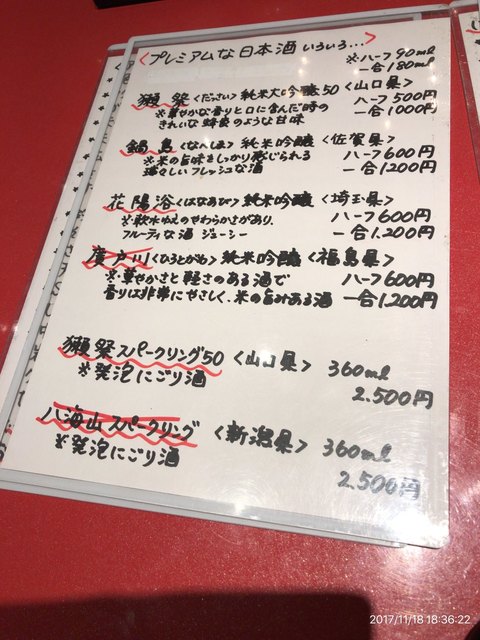 ＜プレミアムな日本酒いろいろ...＞ ※ハーフ90ml
一合180ml
獺祭＜だっさい＞純米大吟醸50＜山口県＞
※華やかな香りと口に含んだ時の ハーフ500円
きれいな蜂蜜のような甘味 一合1000円
鍋島＜なべしま＞純米吟醸＜佐賀県＞
※米の旨味をしっかり感じられる ハーフ600円
瑞々しいフレッシュな酒 一合1.200円
花陽浴＜はなあび＞純米吟醸＜埼玉県＞
※軟水ゆえのやわらかさがあり、 ハーフ600円
フルーティな酒 ジューシー 一合1.200円
廣戸川＜ひろとがわ＞純米吟醸＜福島県＞
※華やかさと軽さのある酒で ハーフ600円
香りは非常にやさしく、米の旨みある酒 一合1.200円
獺祭スパークリング50＜山口県＞ 360ml
※発泡にごり酒 2.500円
八海山スパークリング＜新潟県＞ 360ml
※発泡にごり酒 2.500円
2017/11/18 18:36:22